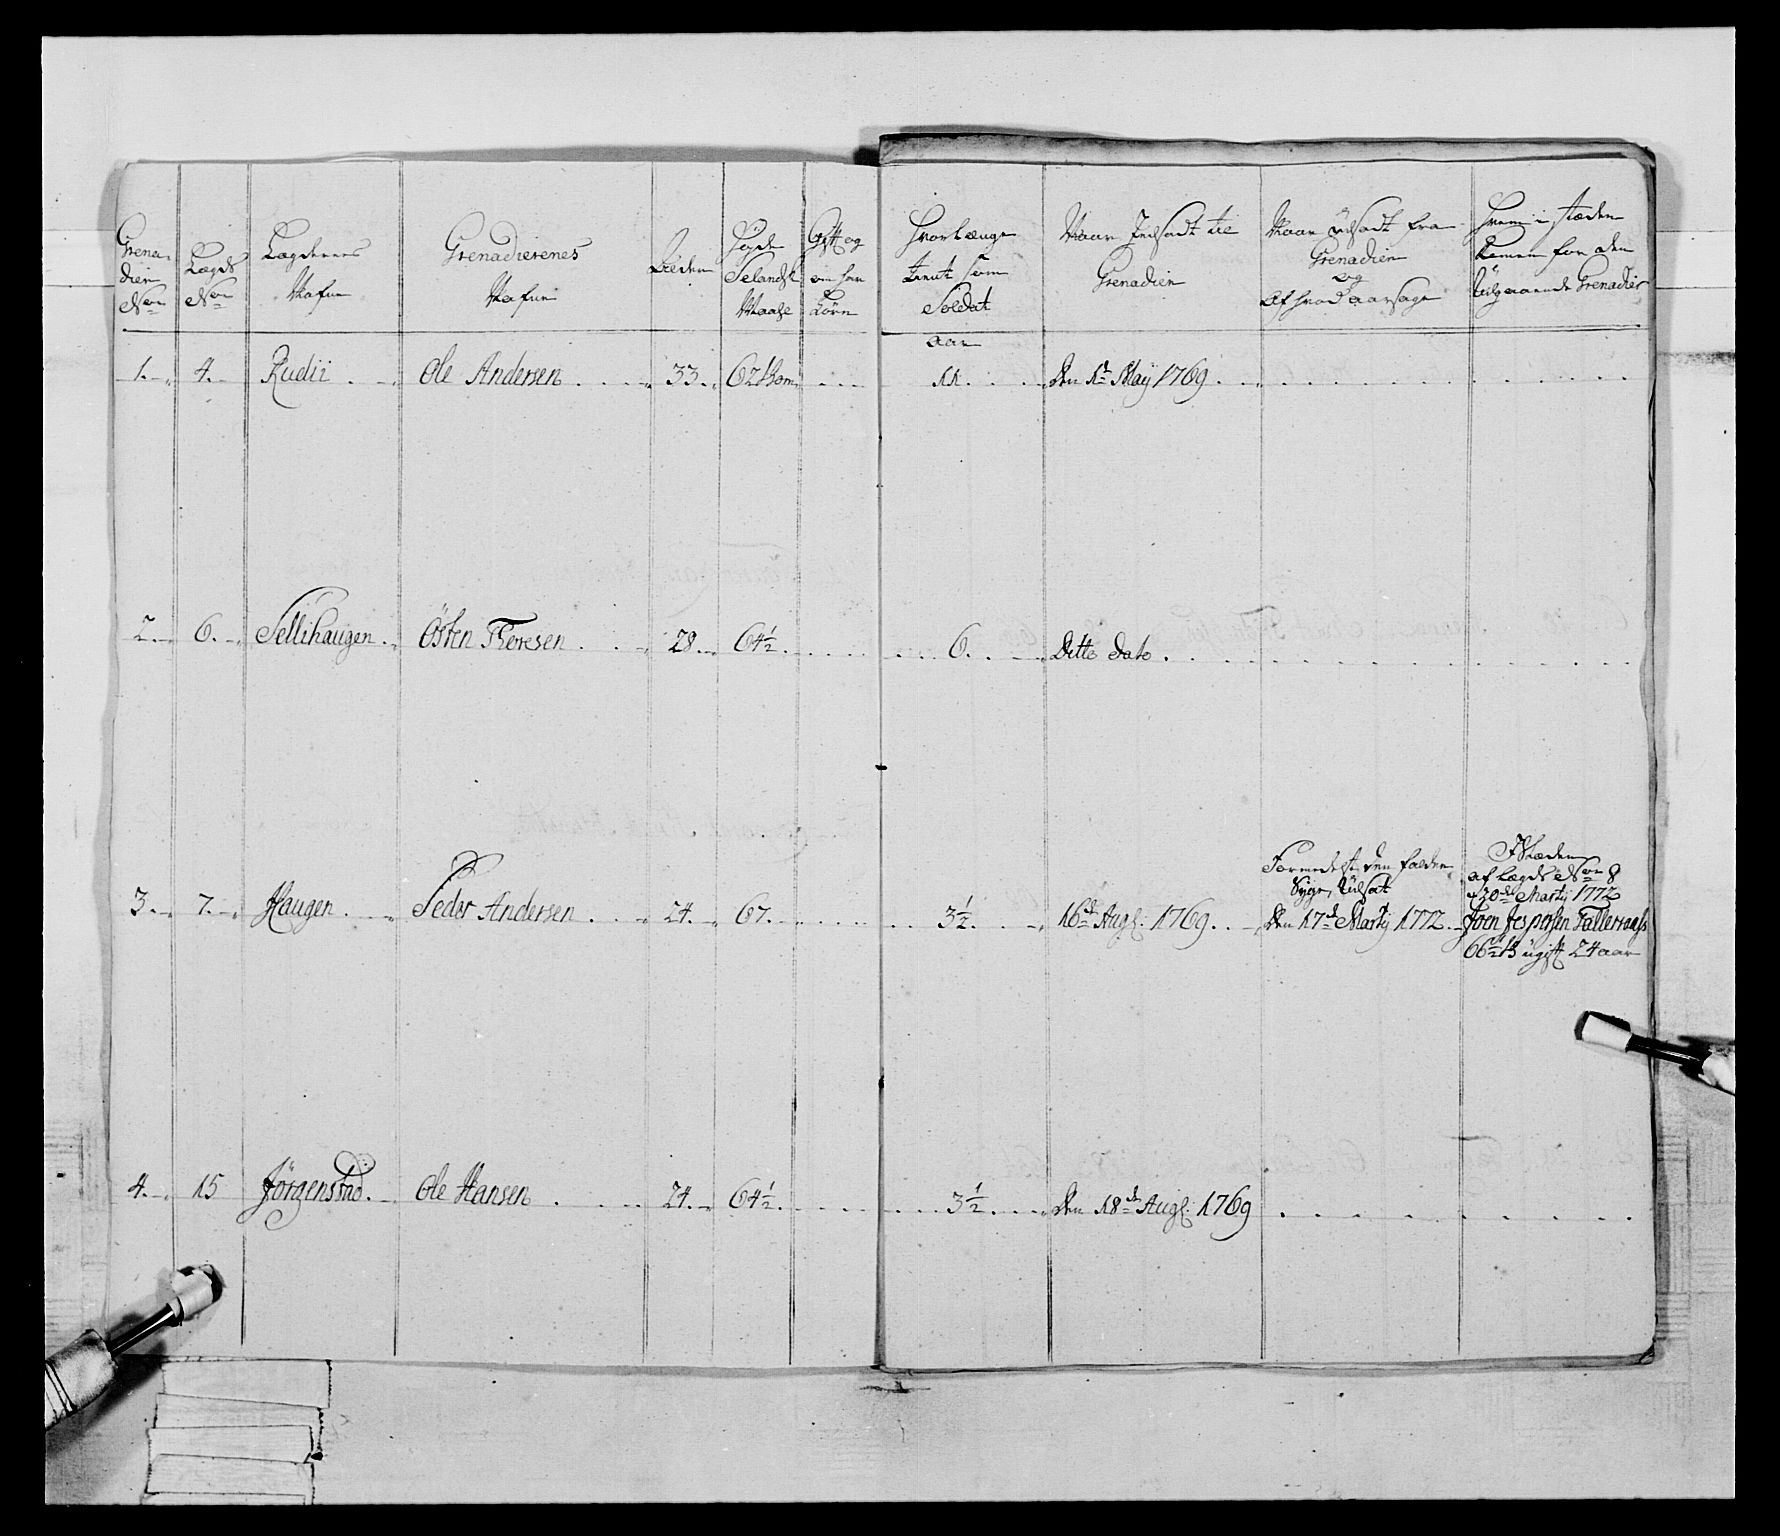 Grena-
dier
No
Lægds
No
Lægdernes
Nafne
Grenadierenes
Nafne
Alder
Højde
Selandsk
Maale
Gift og
om han
Börn
Hvor længe
tient som
Soldat
aar
Naar Indsadt til
Grenadier
Naar udsadt fra
Grenadier
og
af hvad aarsage
Hvem i stæden
kommen for den
udgaaende Grenadier
1. 4. Rudii Ole Andersen 33. 62 11. Den 1d Maÿ 1769
2. 6. Sellihaugen Östen Thoresen 28. 64½ 6. Ditto Dato
3. 7. Haugen Peder Andersen 24. 67. 3½. 16d Augs: 1769
Formedelst den faldende
Syge, Udsat
Den 17d Martÿ 1772
I Stæden
af Lægds No 8
d 20d Martÿ 1772
Joen Jespersen
66½ ugift 24 aar
4. 15 Jörgenstad Ole Hansen 24. 64½ 3½ Den 18d Augs: 1769